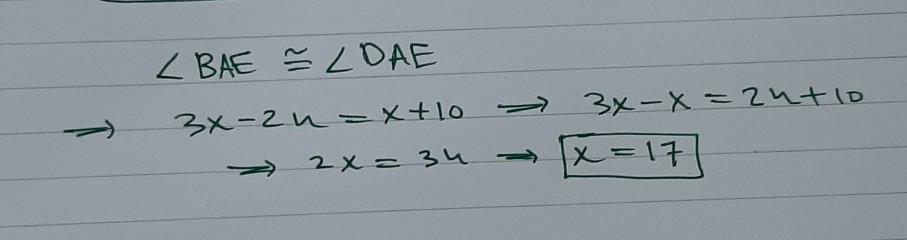 ∠BAE ≅ ∠DAE
→ 3x-24=x+10 → 3x-x=24+10
→ 2x=34 → x=17